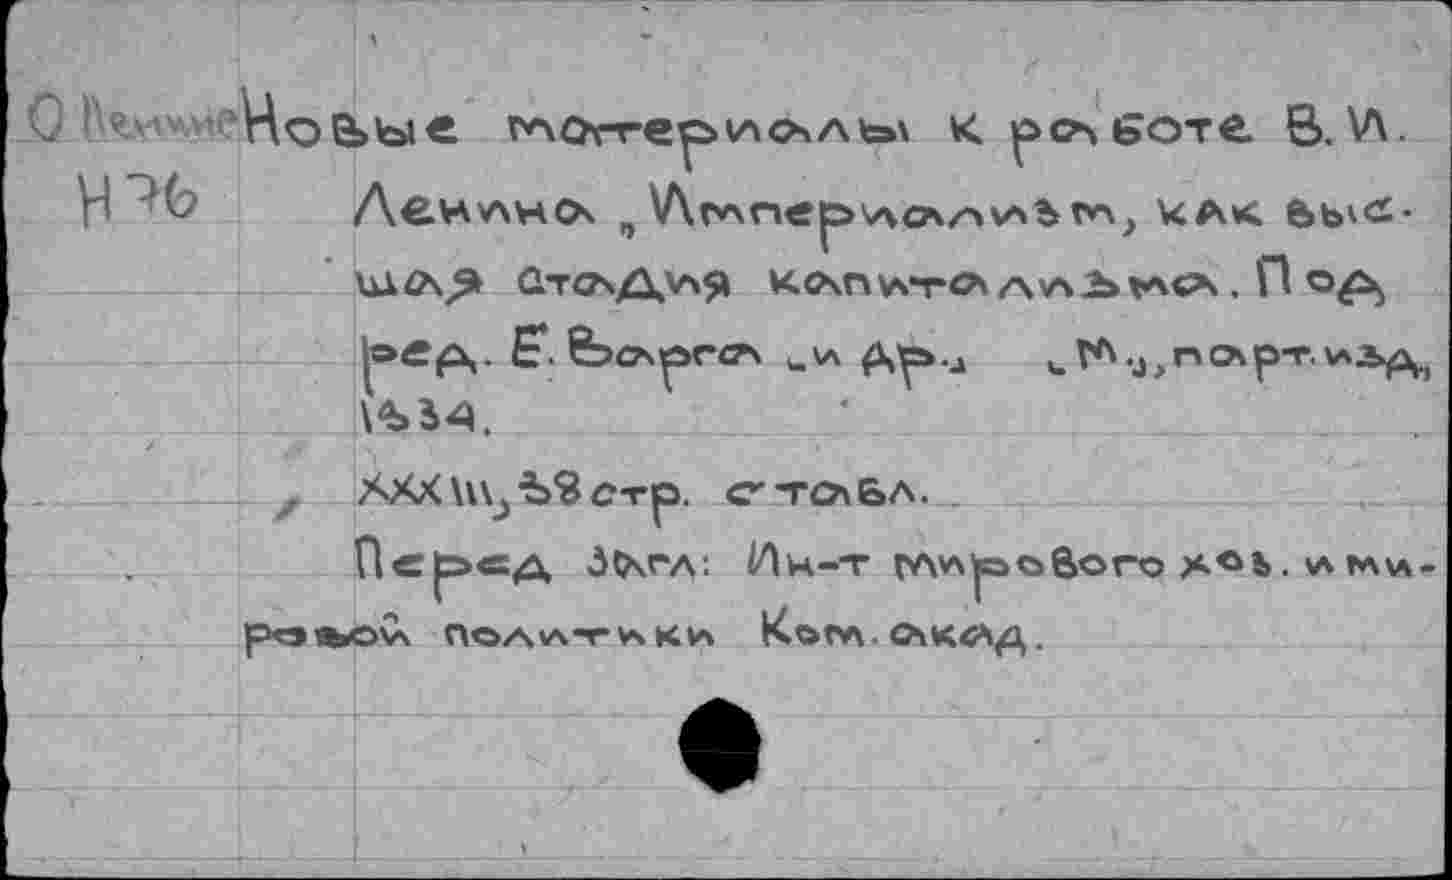 О Ленине Новые материалы к работе В. И.
Н 76 Ленина „Империализм, как выс-
шая стадия капитализма. Под
ред. Е. Варга [и др.] [М.], партизд,
1934.
XXXIII, 38 стр. с табл.
Перед загл: Ин-т мирового хоз. и ми-
ровой политики Ком. акад.